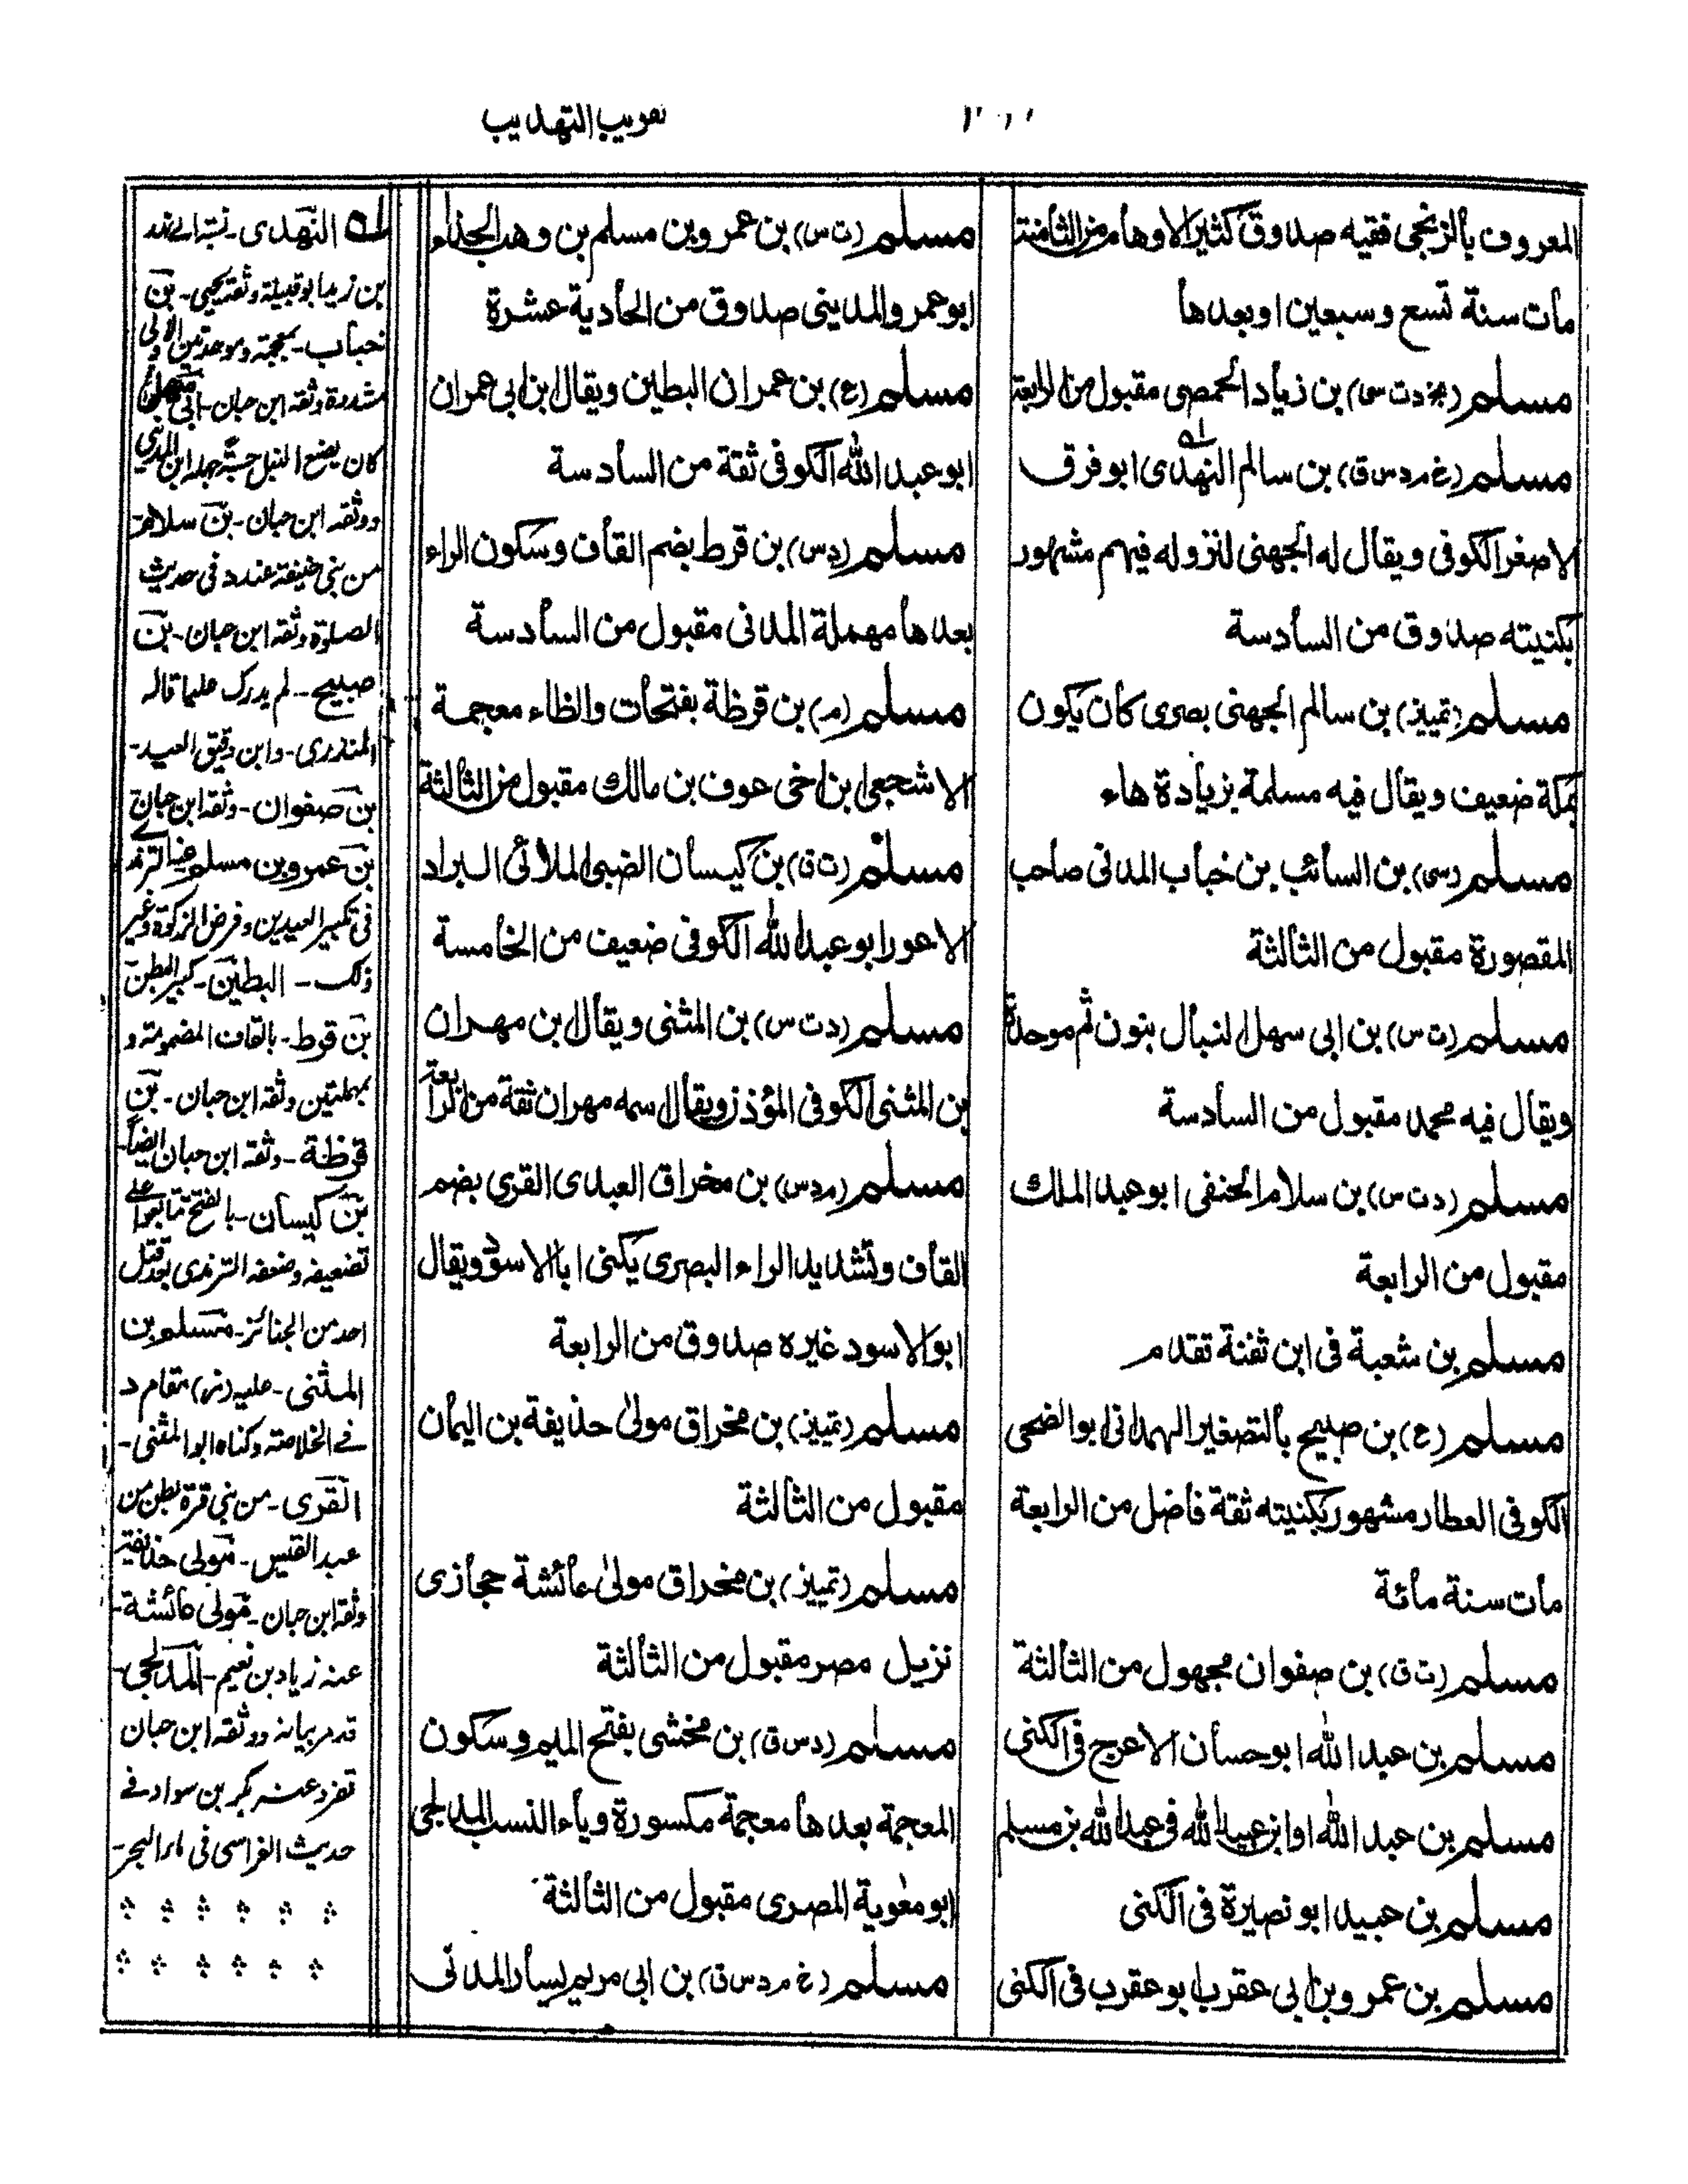 تقريب التهذيب
المعروف بالزنجي فقيه صدوق كثير الاوهام من الثامنة
مات سنة تسع وسبعين او بعدها
مسلم (بخ د ت سى) بن زياد الحمصى مقبول من الرابعة
مسلم (خ م د س ق) بن سالم النهدى ابو فرق
الاصغر الكوفى ويقال له الجهنى لنزوله فيهم مشهور
بكنيته صدوق من السادسة
مسلم (تمييز) بن سالم الجهنى بصرى كان يكون
بمكة ضعيف ويقال فيه مسلمة بزيادة هاء
مسلم (سى) بن السائب بن خباب المدنى صاحب
المقصورة مقبول من الثالثة
مسلم (ت س) بن ابى سهل النبال بنون ثم موحدة
ويقال فيه محمد مقبول من السادسة
مسلم (د ت س) بن سلام الحنفى ابو عبد الملك
مقبول من الرابعة
مسلم بن شعبة فى ابن ثفنة تقدم
مسلم (ع) بن صبيح بالتصغير الهمدانى ابو الضحى
الكوفى العطار مشهور بكنيته ثقة فاضل من الرابعة
مات سنة مائة
مسلم (ت ق) بن صفوان مجهول من الثالثة
مسلم بن عبد الله ابو حسان الاعرج فى الكنى
مسلم بن عبد الله او ابن عبيد الله فى عبد الله بن مسلم
مسلم بن عبيد ابو نصيرة فى الكنى
مسلم بن عمرو بن ابى عقرب ابو عقرب فى الكنى
مسلم (ت س) بن عمرو بن مسلم بن وهب الحذاء
ابو عمرو المدينى صدوق من الحادية عشرة
مسلم (ع) بن عمران البطين ويقال ابن ابى عمران
ابو عبد الله الكوفى ثقة من السادسة
مسلم (د س) بن قرط بضم القاف وسكون الراء
بعدها مهملة المدنى مقبول من السادسة
مسلم (م) بن قرظة بفتحات والظاء معجمة
الاشجعى ابن اخى عوف بن مالك مقبول من الثالثة
مسلم (ت ق) بن كيسان الضبى الملائى البراد
الاعور ابو عبد الله الكوفى ضعيف من الخامسة
مسلم (د ت س) بن المثنى ويقال ابن مهران
بن المثنى الكوفى المؤذن ويقال اسمه مهران ثقة من الرابعة
مسلم (م د س) بن مخراق العبدى القرى بضم
القاف وتشديد الراء البصرى يكنى ابا الاسود ويقال
ابو الاسود غيره صدوق من الرابعة
مسلم (تمييز) بن مخراق مولى حذيفة بن اليمان
مقبول من الثالثة
مسلم (تمييز) بن مخراق مولى عائشة حجازى
نزيل مصر مقبول من الثالثة
مسلم (د س ق) بن مخشى بفتح الميم وسكون
المعجمة بعدها معجمة مكسورة وياء النسب المدلجى
ابو معٰوية المصرى مقبول من الثالثة
مسلم (خ م د س ق) بن ابى مريم يسار المدنى
له النهدى - نسبة الى نهد
بن زيد ابو قبيلة وثقه يحيى - بن
خباب - بمعجمة وموحدتين الاولى
مشددة وثقه ابن حبان - ابى سهل
كان يضع النبل حسبة جهله ابن المدينى
ووثقه ابن حبان - بن سلام
من بنى حنيفة عنده فى حديث
الصلوة وثقه ابن حبان - بن
صبيح - لم يدرك عليا قاله
المنذرى - وابن دقيق العيد -
بن صفوان - وثقه ابن حبان
بن عمرو بن مسلم عنه الترمذى
فى تكبير العيدين وفرض الزكوة وغير
ذلك - البطين - كبير البطن
بن قرط - بالقاف المضمومة و
بمهملتين وثقه ابن حبان - بن
قرظة - وثقه ابن حبان ايضا -
بن كيسان - بالفتح تتابعوا على
تضعيفه وضعفه الترمذى بعد قتل
احد من الجنائز - مسلم بن
المثنى - عليه مقام د
فے الخلاصة وكناه ابو المثنى -
القرى - من بنى قرة بطن من
عبد القيس - مولى حذيفة
وثقه ابن حبان - مولى عائشة -
عنه زياد بن نعيم - المدلجى -
قد مر بيانه ووثقه ابن حبان
تفرد عنه بكر بن سوادة فے
حديث الفراسى فى ماء البحر -